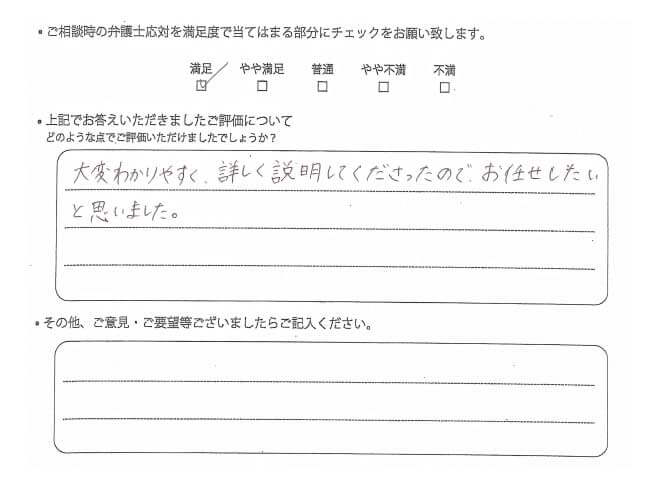 ・ご相談時の弁護士応対を満足度で当てはまる部分にチェックをお願い致します。
満足 やや満足 普通 やや不満 不満
☑ □ □ □ □
・上記でお答えいただきましたご評価について
どのような点でご評価いただけましたでしょうか？
大変わかりやすく、詳しく説明してくださったので、お任せしたい
と思いました。
・その他、ご意見・ご要望等ございましたらご記入ください。